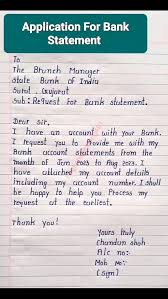 Application For Bank
Statement
To
The Branch Manager
State Bank of India
Surat, Gujarat
Sub: Request For Bank statement.
Dear Sir,
I have an account with your Bank.
I request you to Provide me with my
Bank account statements from the
month of Jan 2023 to Aug 2023. I
have attached my account details
Including my account number. I shall
be happy to help you. Process my
request at the earliest.
Thank you!
Yours truly
Chandan Shah
A/c no:-
Mob no:-
(Sign)